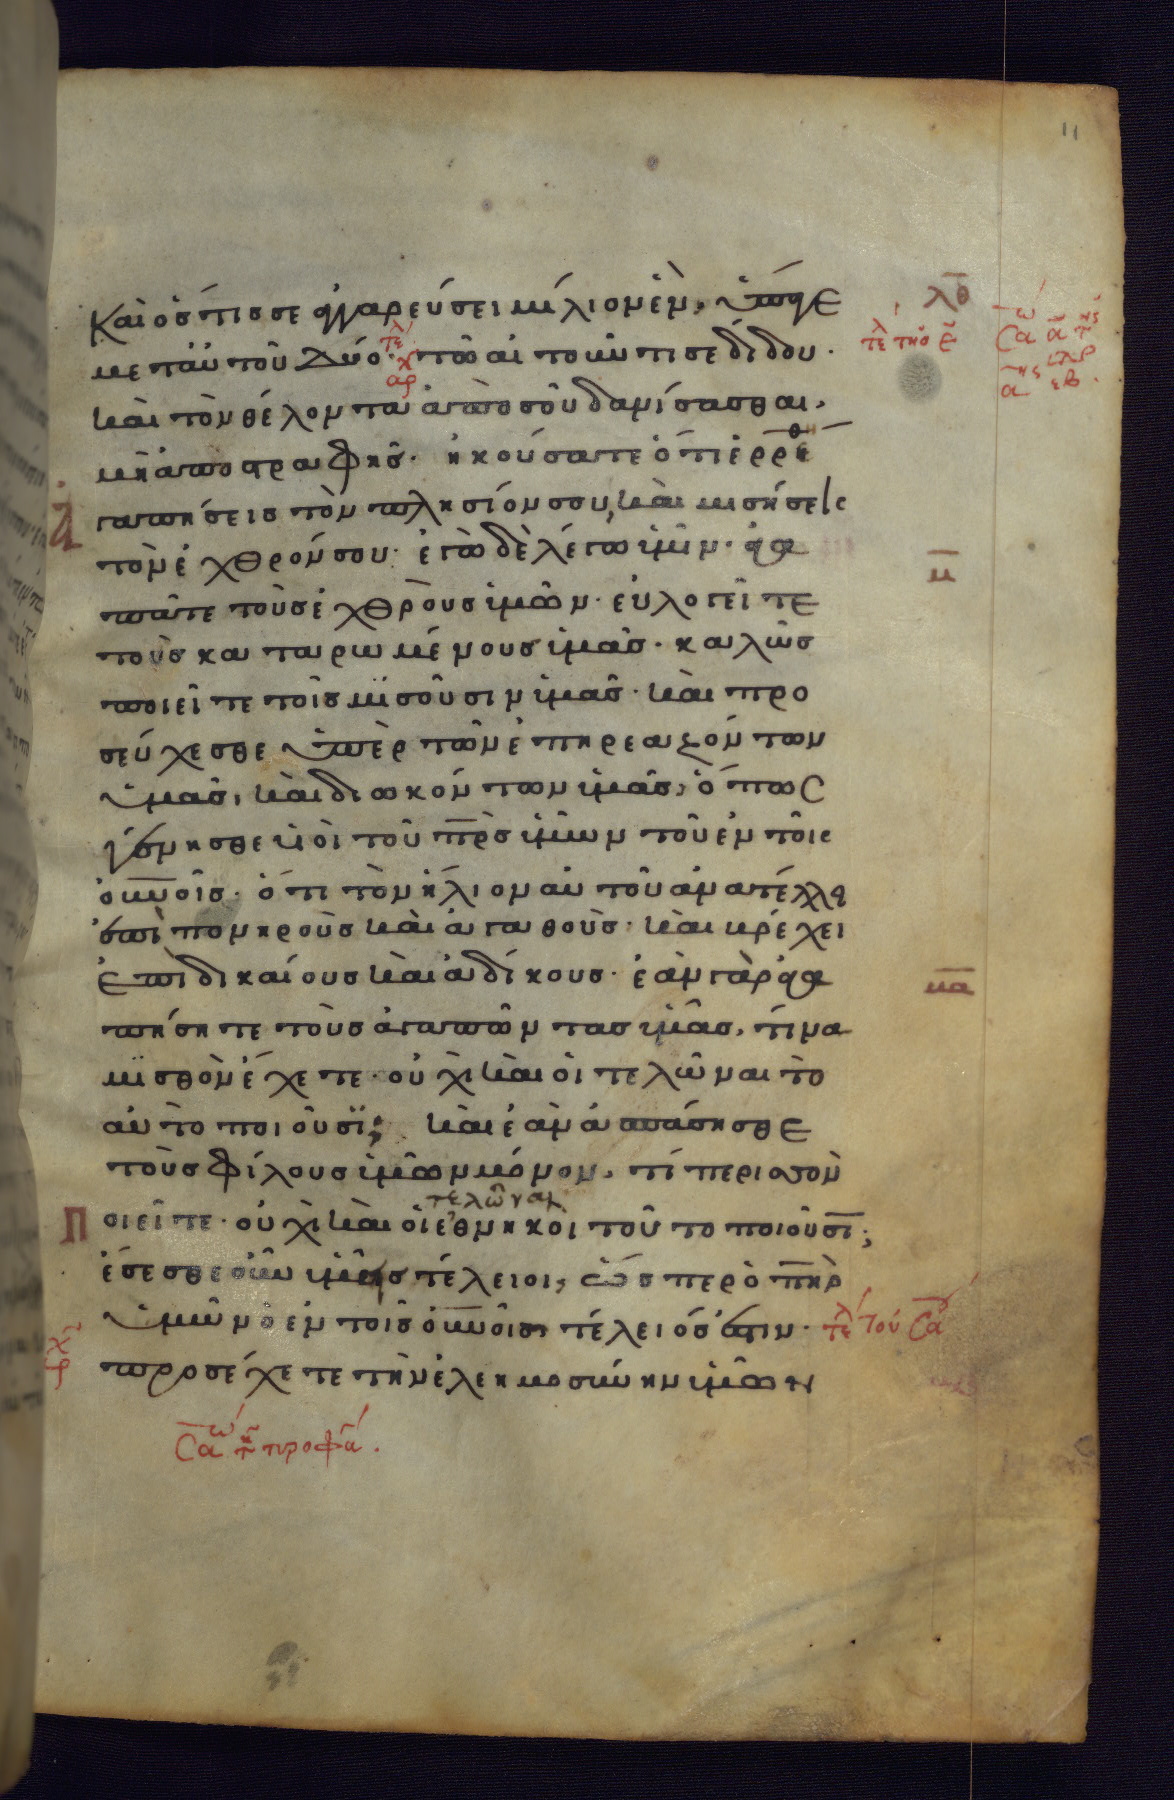 11
Καὶ ὅστις σε ἀγγαρεύσει μίλιον ἕν, ὕπαγε
μετ' αὐτοῦ δύο· τῶ αἰτοῦντι σε δίδου·
καὶ τὸν θέλοντα ἀπὸ σοῦ δανίσασθαι,
μὴ ἀποστραφῆς· ἠκούσατε ὅτι ἐρρέθη
Ἀγαπήσεις τὸν πλησίον σου, καὶ μισήσεις
τὸν ἐχθρόν σου· ἐγὼ δὲ λέγω ὑμῖν· ἀγα
πᾶτε τοὺς ἐχθροὺς ὑμῶν· εὐλογεῖτε
τοὺς καταρωμένους ὑμᾶς· καλῶς
ποιεῖτε τοῖς μισοῦσιν ὑμᾶς· καὶ προ
σεύχεσθε ὑπὲρ τῶν ἐπηρεαζόντων
ὑμᾶς, καὶ διωκόντων ὑμᾶς, ὅπως
γένησθε υἱοὶ τοῦ πρς ὑμῶν τοῦ ἐν τοῖς
οὐνοῖς· ὅτι τὸν ἥλιον αὐτοῦ ἀνατέλλει
ἐπὶ πονηροὺς καὶ ἀγαθούς· καὶ βρέχει
ἐπὶ δικαίους καὶ ἀδίκους· ἐὰν γὰρ ἀγα
πήσητε τοὺς ἀγαπῶντας ὑμᾶς, τίνα
μισθὸν ἔχετε· οὐχὶ καὶ οἱ τελῶναι τὸ
αὐτὸ ποιοῦσι; καὶ ἐὰν ἀσπάσησθε
τοὺς φίλους ὑμῶν μόνον, τί περισσὸν
τελῶναι
Ποιεῖτε· οὐχὶ καὶ οἱ ἐθνηκοὶ τοῦτο ποιοῦσι;
ἔσεσθε οὖν ὑμεῖς τέλειοι, ὥσπερ ὁ πηρ
ὑμῶν ὁ ἐν τοῖς οὐνοῖς τέλειός ἐστιν· τέλ τοῦ Σα
προσέχετε τὴν ἐλεημοσύνην ὑμῶν
λθ
μ
μα